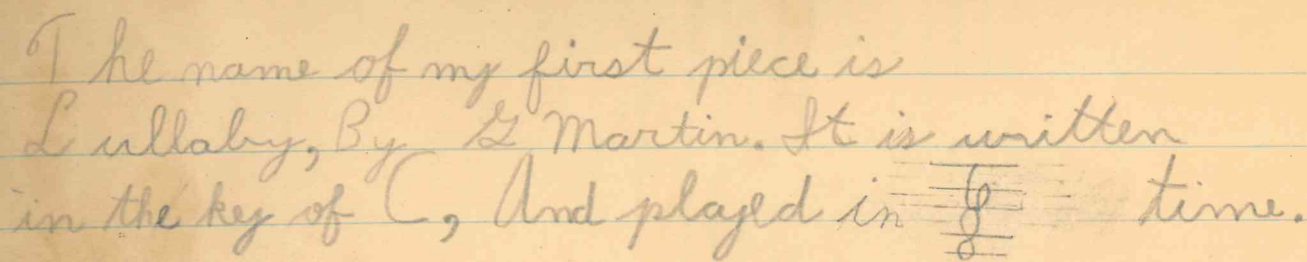 The name of my first piece is
Lullaby, By G Martin. It is written
in the key of C, And played in 6/8 time.